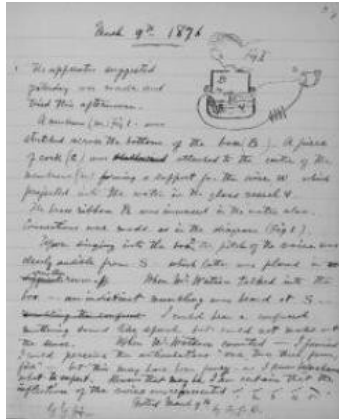 March 9th 1876
Fig 1
1. The apparatus suggested
yesterday was made and
tried this afternoon.
A membrane (m) Fig 1. was
stretched across the bottom of the box (B). A piece
of cork (c) was attached to the centre of the
membrane (m) forming a support for the wire W which
projected into the water in the glass vessel V
The brass ribbon R was immersed in the water also.
Connections was made as in the diagram (Fig 1).
Upon singing into the box, the pitch of the voice was
clearly audible from S — which latter was placed in
another room. When Mr Watson talked into the
box — an indistinct mumbling was heard at S.
I could hear a confused
muttering sound like speech but could not make out
the sense. When Mr Watson counted — I fancied
I could perceive the articulations "one, two, three, four,
five" — but this may have been fancy — as I knew beforehand
what to expect. However that may be I am certain that the
inflection of the voice was represented
March 9th